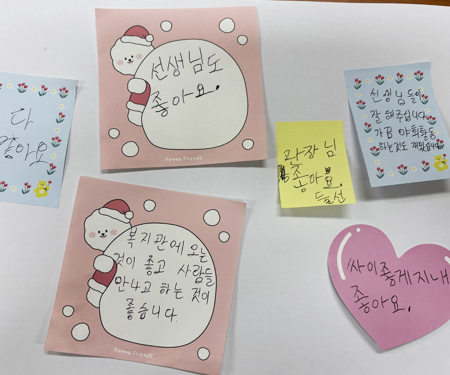 다
좋아요
선생님도
좋아요.
Donna Friends
관장님
좋아요.
선생님들이
잘 해주십니다
가끔 야외활동
하는것도 재밌습니다
복지관에 오는
것이 좋고 사람들
만나고 하는 것이
좋습니다.
싸이좋게지내
좋아요.